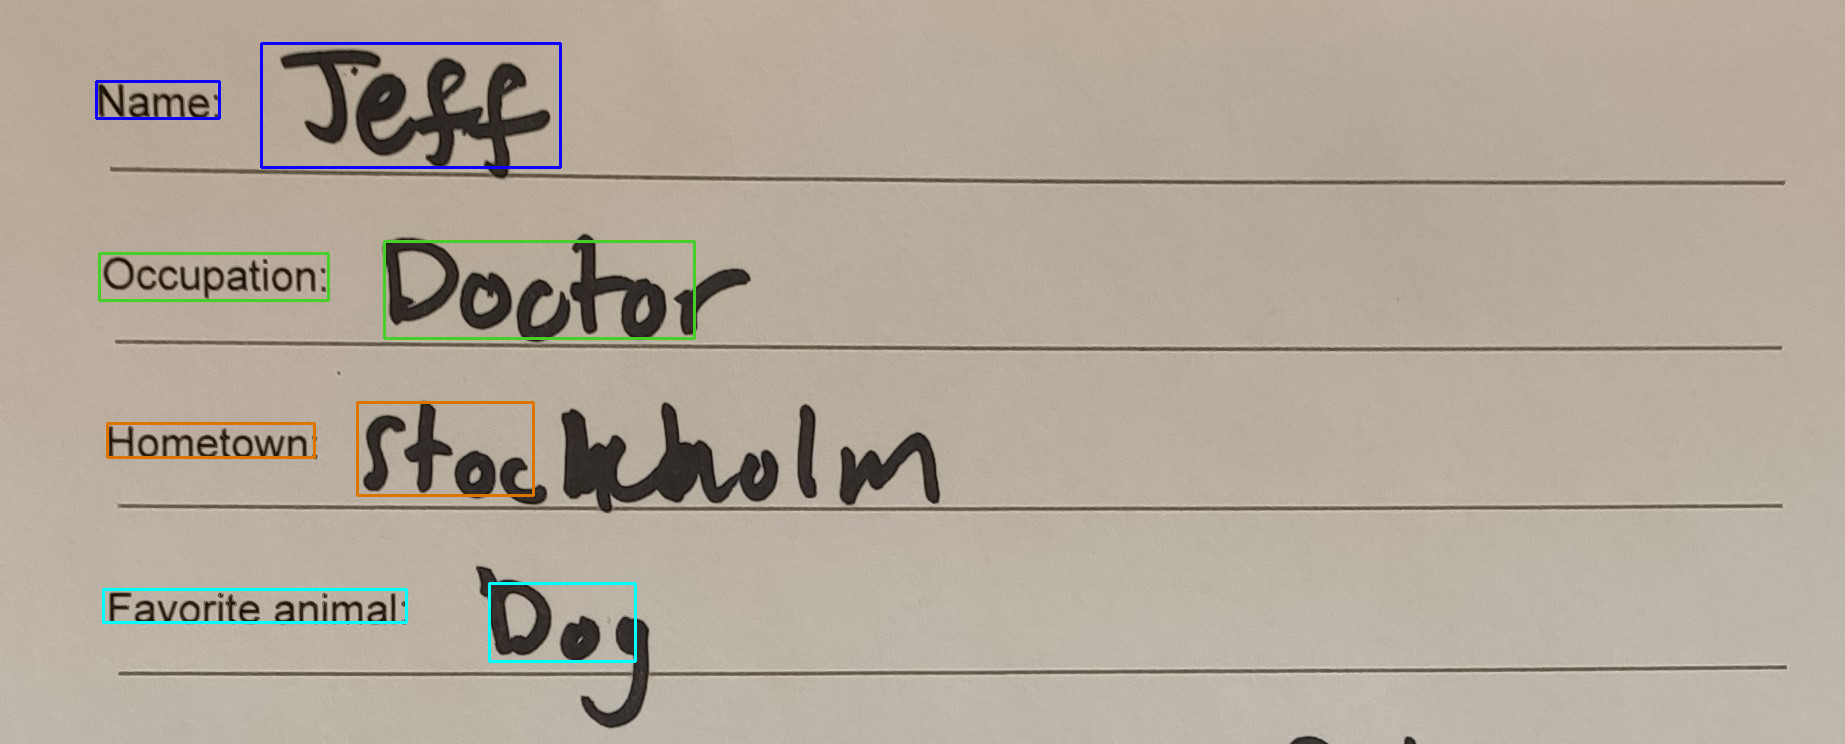 Name: Jeff
Occupation: Doctor
Hometown: Stockholm
Favorite animal: Dog